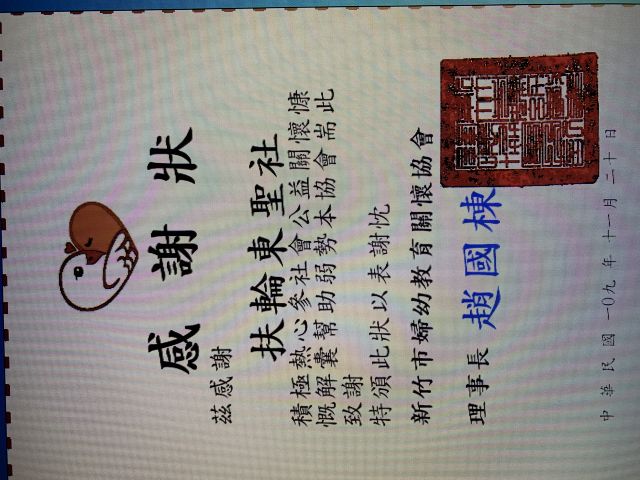 感謝狀
茲感謝
扶輪東聖社
積極熱心參社會公益關懷慷
慨解囊幫助弱勢本協會耑此
致謝
特頒此狀以表謝忱
新竹市婦幼教育關懷協會
理事長 趙國棟
中華民國一0九年十一月二十日